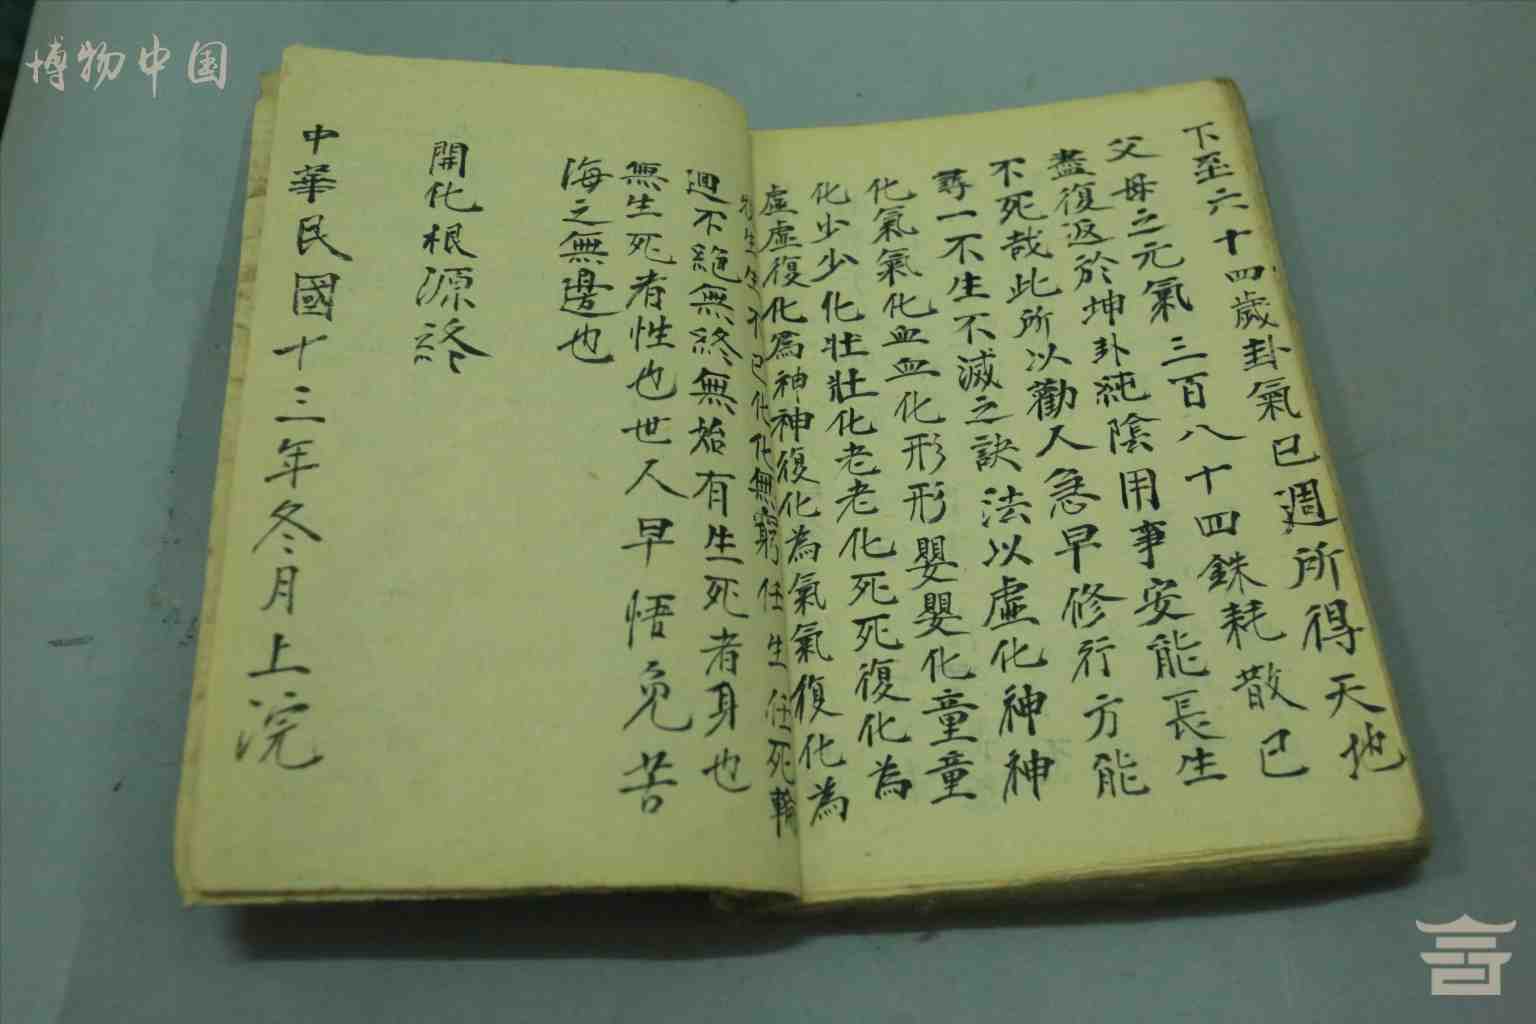 博物中国
下至六十四歲卦氣已週所得天地
父母之元氣三百八十四銖耗散已
盡復返於坤卦純陰用事安能長生
不死哉此所以勸人急早修行方能
尋一不生不滅之訣法以虛化神神
化氣氣化血血化形形嬰嬰化童童
化少少化壯壯化老老化死死復化為
虛虛復化為神神復化為氣氣復化為
生生不已化化無窮任生任死輪
迴不絕無終無始有生死者身也
無生死者性也世人早悟免苦
海之無邊也
開化根源終
中華民國十三年冬月上浣